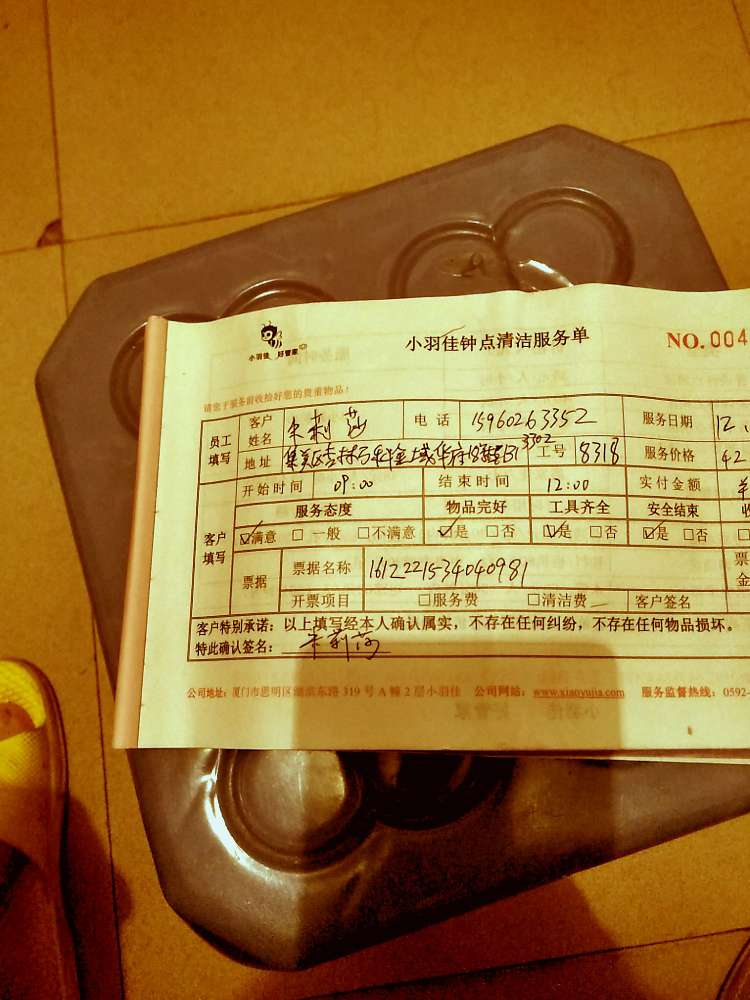 小羽佳 好管家
小羽佳钟点清洁服务单
NO.004
请您于服务前收拾好您的贵重物品!
员工填写 客户姓名 朱莉莎 电话 15960263352 服务日期 12.
地址 集美区杏林 金域华府 3302 工号 8318 服务价格 42
开始时间 09:00 结束时间 12:00 实付金额
服务态度 物品完好 工具齐全 安全结束
客户填写 ☑满意 □一般 □不满意 ☑是 □否 ☑是 □否 ☑是 □否
票据 票据名称 1612221534040981 票
金
开票项目 □服务费 □清洁费 客户签名
客户特别承诺:以上填写经本人确认属实,不存在任何纠纷,不存在任何物品损坏。
特此确认签名: 朱莉莎
公司地址:厦门市思明区湖滨东路 319 号 A 幢 2 层小羽佳 公司网站:www.xiaoyujia.com 服务监督热线:0592-